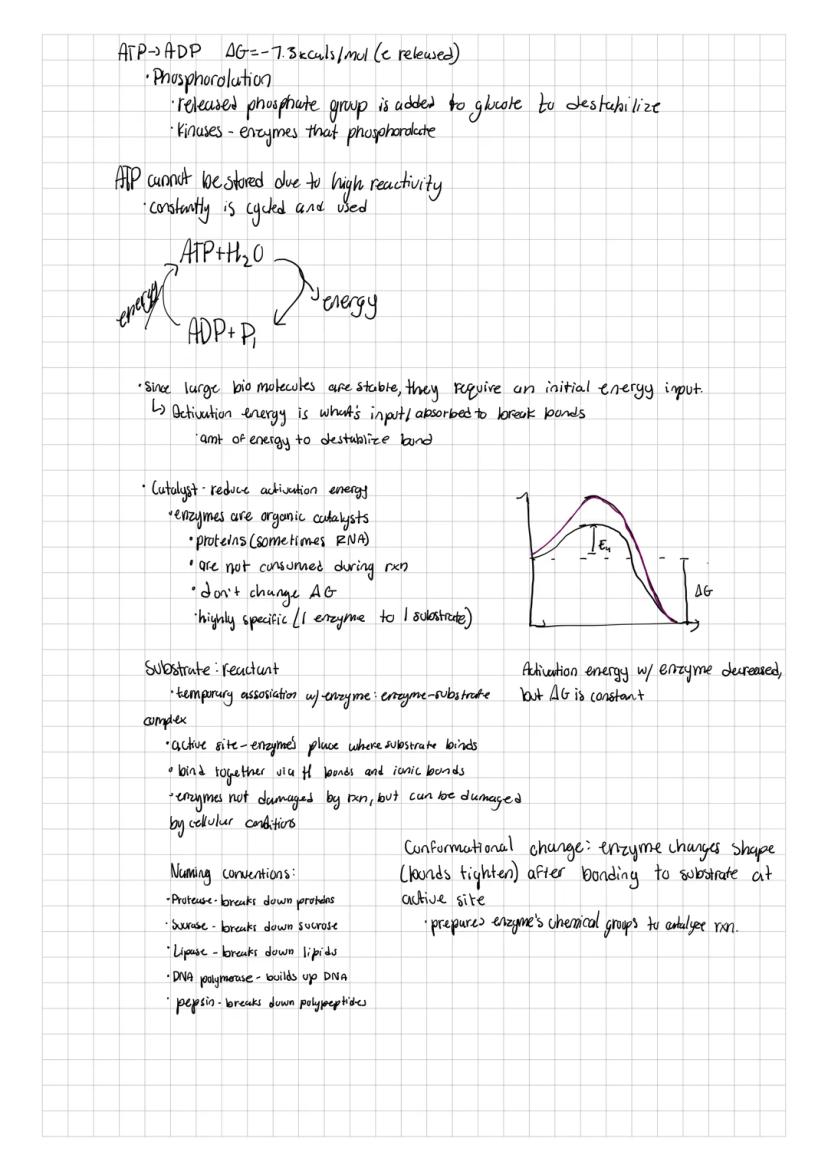 ATP→ADP ΔG=-7.3kcals/mol (e released)
·Phosphorolation
·released phosphate group is added to glucose to destabilize
·kinases - enzymes that phosphorolate
ATP cannot be stored due to high reactivity
·constantly is cycled and used
ATP+H₂O
energy
energy
ADP+Pᵢ
·Since large bio molecules are stable, they require an initial energy input.
↳ Activation energy is what's input/absorbed to break bonds
·amt of energy to destablize bond
·Catalyst - reduce activation energy
·enzymes are organic catalysts
·proteins (sometimes RNA)
·are not consumed during rxn
·don't change ΔG
·highly specific (1 enzyme to 1 substrate)
Eₐ
ΔG
Activation energy w/ enzyme decreased,
but ΔG is constant
Substrate: reactant
·temporary assosiation w/ enzyme: enzyme-substrate
complex
·active site - enzyme's place where substrate binds
·bind together via H bonds and ionic bonds
·enzymes not damaged by rxn, but can be damaged
by cellular conditions
Conformational change: enzyme changes shape
(bonds tighten) after bonding to substrate at
active site
·prepares enzyme's chemical groups to catalyze rxn.
Naming conventions:
·Protease - breaks down proteins
·Sucrase - breaks down sucrose
·Lipase - breaks down lipids
·DNA polymerase - builds up DNA
·pepsin - breaks down polypeptides